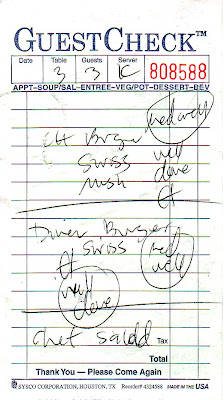 GUESTCHECK™
Date Table Guests Server
3 3 K 808588
APPT-SOUP/SAL-ENTREE-VEG/POT-DESSERT-BEV
med well
Burger well
Swiss done
Mush
Diner Burger
Swiss med well
well done
Chef salad Tax
Total
Thank You — Please Come Again
SYSCO CORPORATION, HOUSTON, TX Reorder# 4524588 MADE IN THE USA